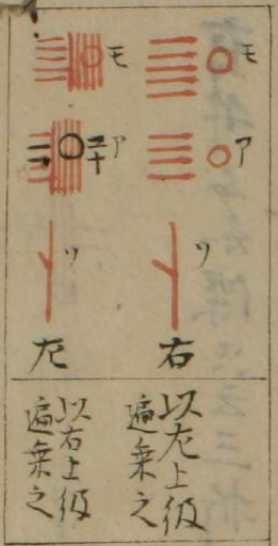 モ
ア
ツ
右
以左上級
遍乗之
モ
ア
ツ
左
以右上級
遍乗之